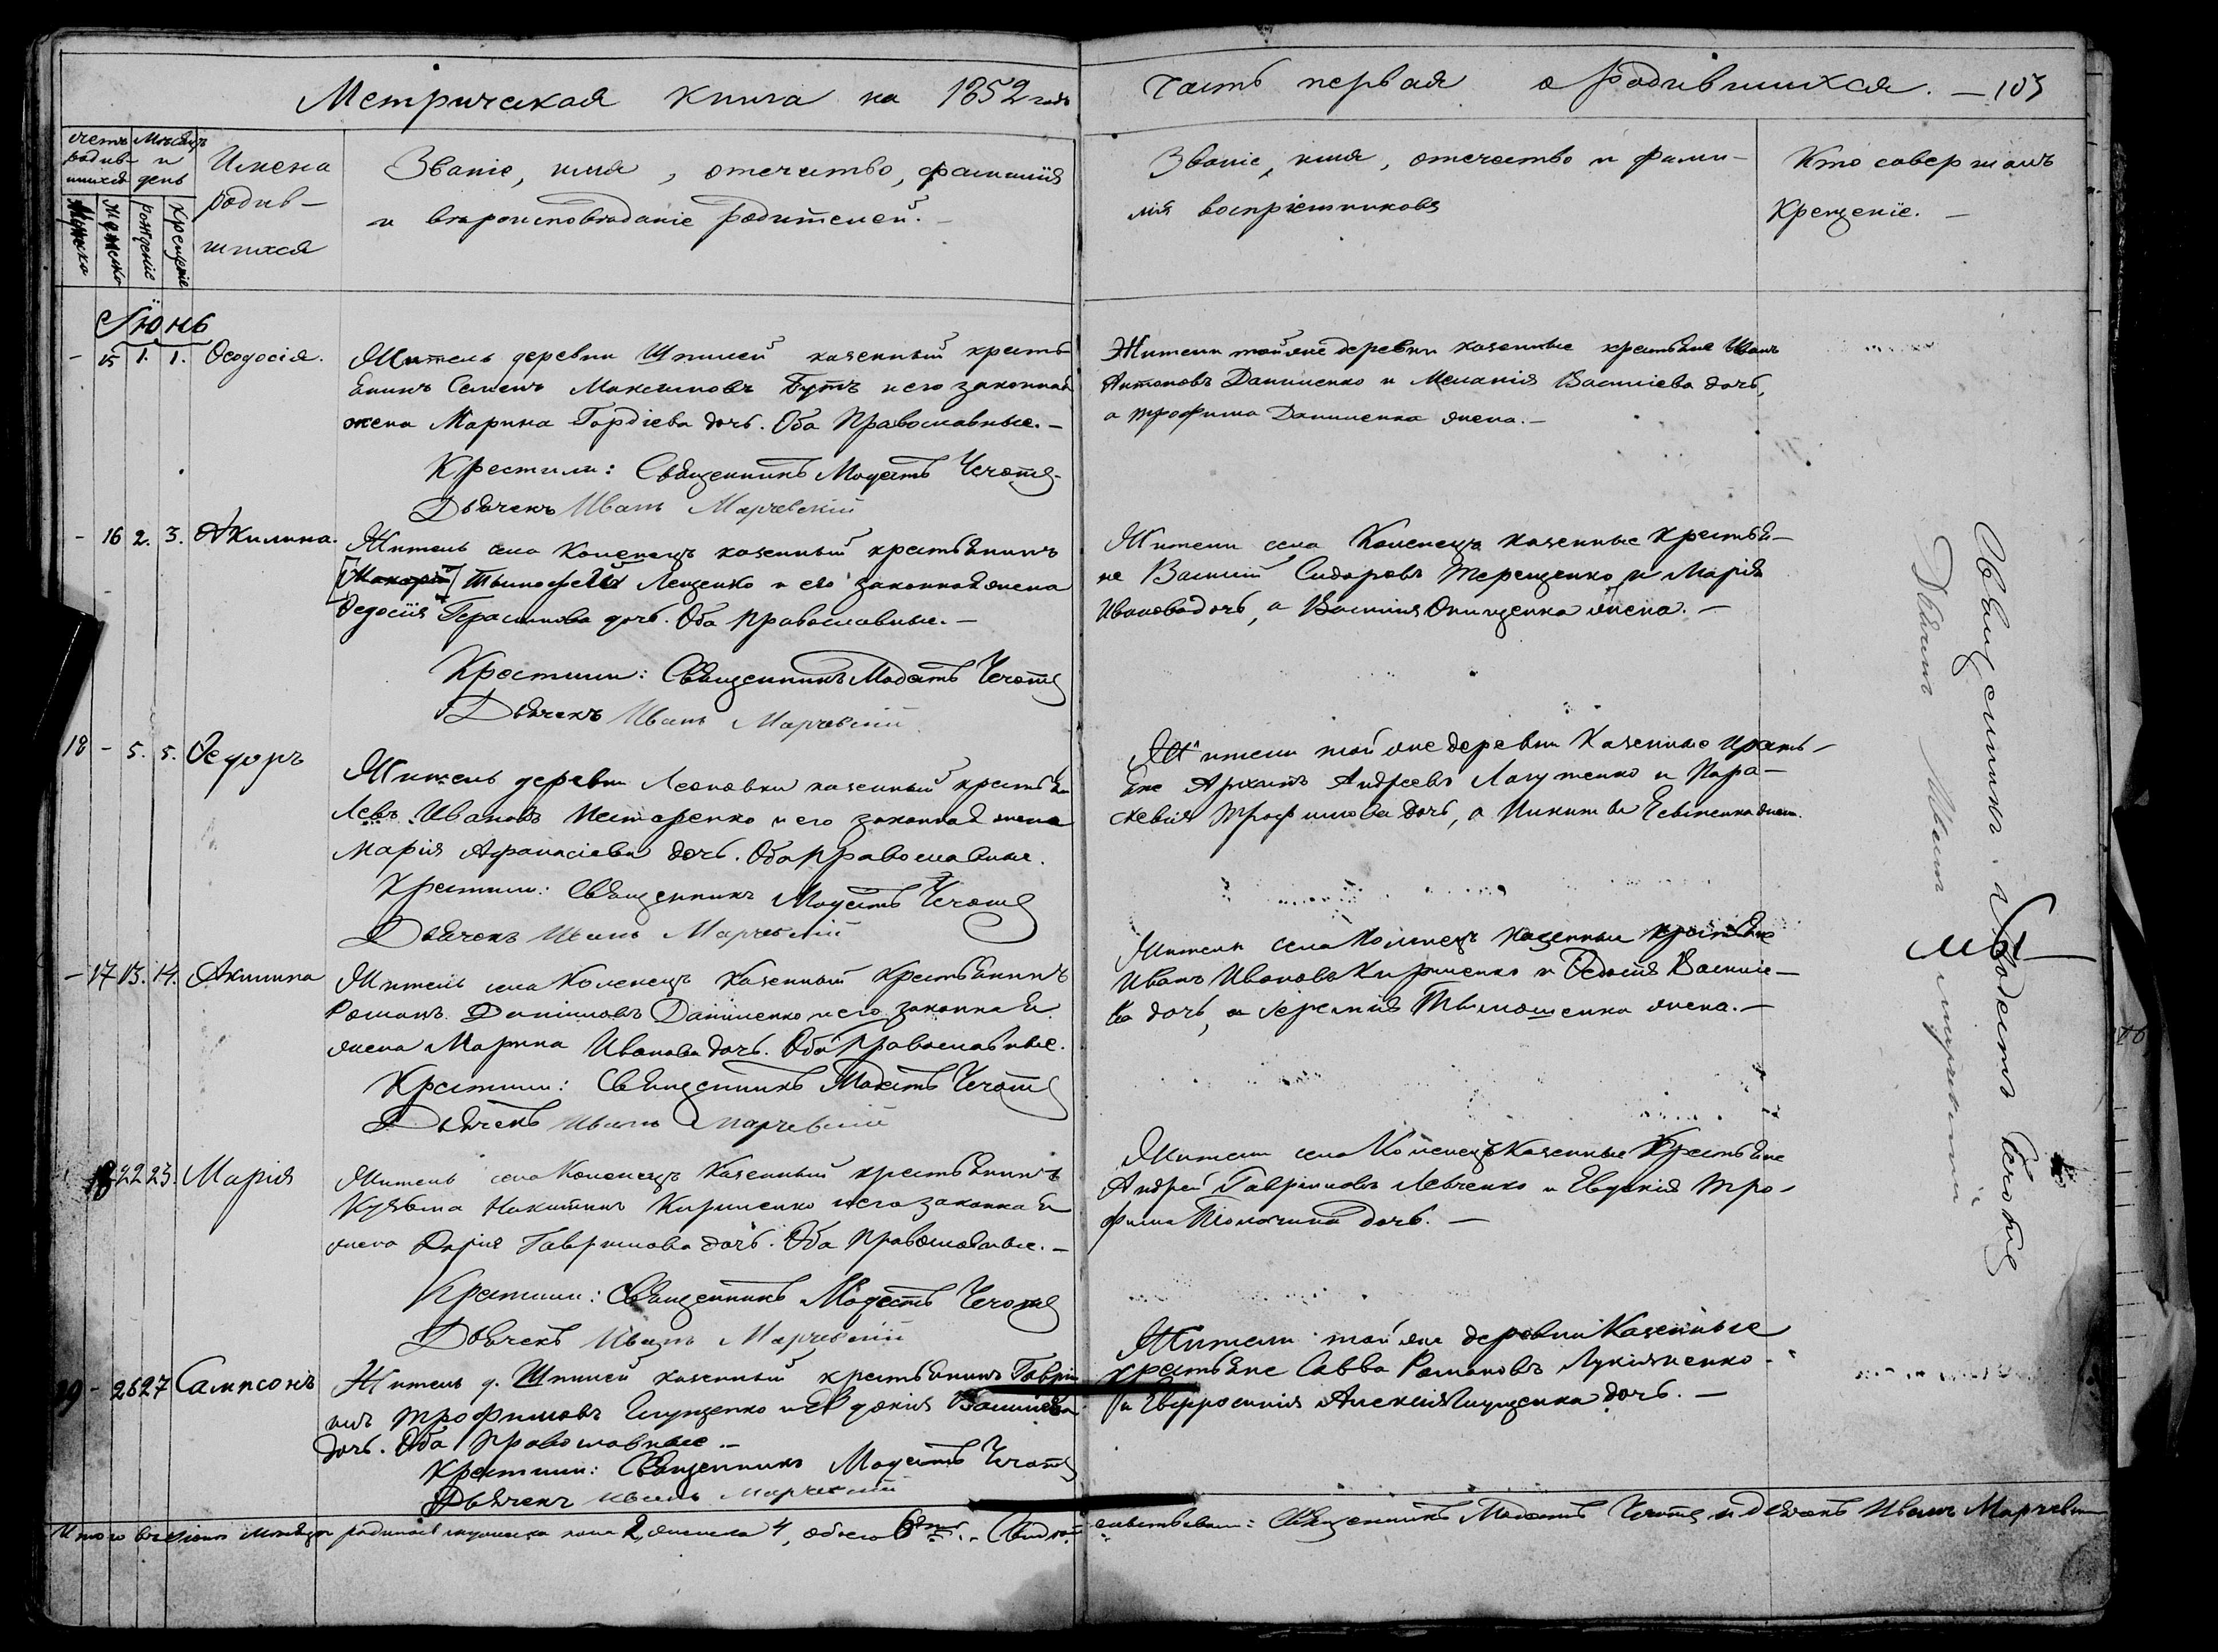 Метрическая книга на 1852 годъ
Часть первая о родившихся. — 103
Счетъ родив-шихся
Мѣсяцъ и день
Имена родив-шихся
Званіе, имя, отечество, фамилія
и вѣроисповѣданіе родителей. —
Званіе, имя, отечество и фами-
лія воспріемниковъ
Кто совершалъ
Крещеніе. —
Мужеска
Женско
рожденіе
Крещеніе
Іюнь
- 15 1. 1. Ѳеодосія.
Житель деревни Шпилей казенный кресть-
янинъ Семенъ Максимовъ Бутъ и его законная
жена Марина Гордіева дочь. Оба Православные. —
Крестили: Священникъ Модестъ Чеготъ
Дьячекъ Иванъ Марчевскій
Жители той же деревни казенные крестьяне Иванъ
Антоновъ Даниленко и Меланія Василіева дочь,
а Трофима Даниленка жена. —
- 16 2. 3. Акилина.
Житель села Коленецъ казенный крестьянинъ
Тимофей Лещенко и его законная жена
Ѳедосія Герасимова дочь. Оба православные. —
Крестили: Священникъ Модестъ Чеготъ
Дьячекъ Иванъ Марчевскій
Жители села Коленецъ казенные крестья-
не Василій Сидоровъ Терещенко и Марія
Иванова дочь, а Василія Онищенка жена. —
18 - 5. 5. Ѳедоръ
Житель деревни Леоновки казенный крестьян
Левъ Ивановъ Нестеренко и его законная жена
Марія Афанасіева дочь. Оба православные.
Крестили: Священникъ Модестъ Чеготъ
Дьячекъ Иванъ Марчевскій
Жители той же деревни Казенные кресть-
яне Архипъ Андреевъ Лагутенко и Пара-
скевія Трофимова дочь, а Никиты Евтенка жена.
- 17 13. 14. Акилина
Житель села Коленецъ казенный крестьянинъ
Романъ Даниловъ Даниленко и его законная
жена Марина Иванова дочь. Оба православные.
Крестили: Священникъ Модестъ Чеготъ
Дьячекъ Иванъ Марчевскій
Жители села Коленецъ казенные крестьяне
Иванъ Ивановъ Кириленко и Ѳедосія Василіе-
ва дочь, а Іереміи Тимошенка жена. —
18 22 23. Марія
Житель села Коленецъ Казенный крестьянинъ
Кузьма Никитинъ Кириленко и его законная
жена Дарія Гавриилова дочь. Оба православные. —
Крестили: Священникъ Модестъ Чеготъ
Дьячекъ Иванъ Марчевскій
Жители села Коленецъ Казенные Крестьяне
Андрей Гавриловъ Левченко и Евдокія Тро-
фима Толочина дочь. —
19 - 26 27 Сампсонъ
Житель д. Шпилей казенный крестьянинъ Гаврі-
илъ Трофимовъ Глущенко и Евдокія Василіева
дочь. Оба православные. —
Крестили: Священникъ Модестъ Чеготъ
Дьячекъ Иванъ Марчевскій
Жители той же деревни Казенные
крестьяне Савва Романовъ Лукіяненко
и Евфросинія Алексія Глущенка дочь. —
Священникъ Модестъ Чеготъ
Дьячекъ Иванъ Марчевскій
Итого въ Іюнѣ мѣсяцѣ родилось мужеска пола 2, женска 4, обоего 6ть. — Свидѣтельствовали: Священникъ Модестъ Чеготъ и Дьячекъ Иванъ Марчевскій